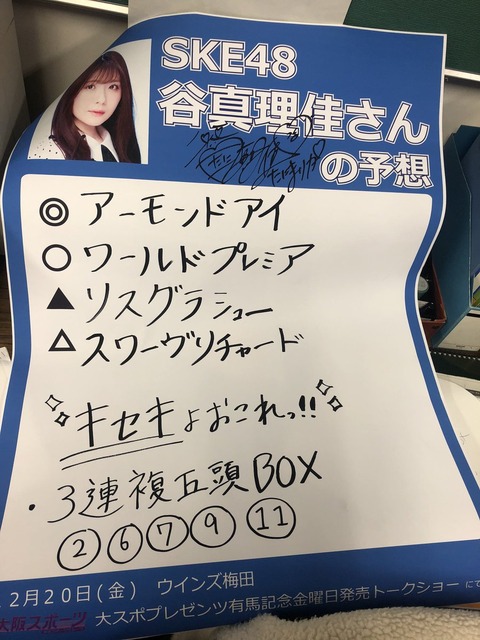 SKE48
谷真理佳さん
の予想
◎アーモンドアイ
○ワールドプレミア
▲リスグラシュー
△スワーヴリチャード
キセキよおこれっ!!
・3連複五頭BOX
② ⑥ ⑦ ⑨ ⑪
2月20日(金) ウインズ梅田
大阪スポーツ 大スポプレゼンツ有馬記念金曜日発売トークショー にて